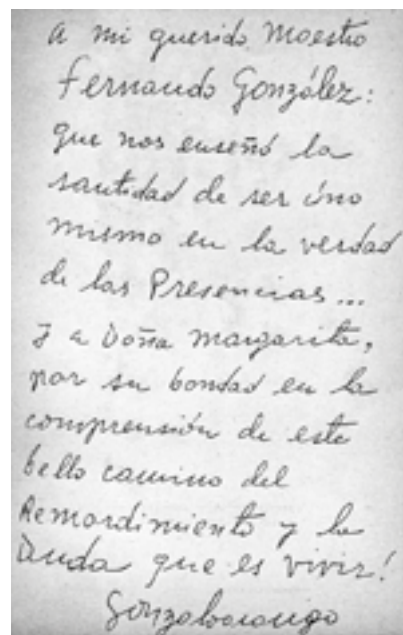 a mi querido Maestro
Fernando González:
que nos enseñó la
santidad de ser úno
mismo en la verdad
de las Presencias...
y a Doña Margarita,
por su bondad en la
comprensión de este
bello camino del
Remordimiento y la
Duda que es vivir!
Gonzaloarango